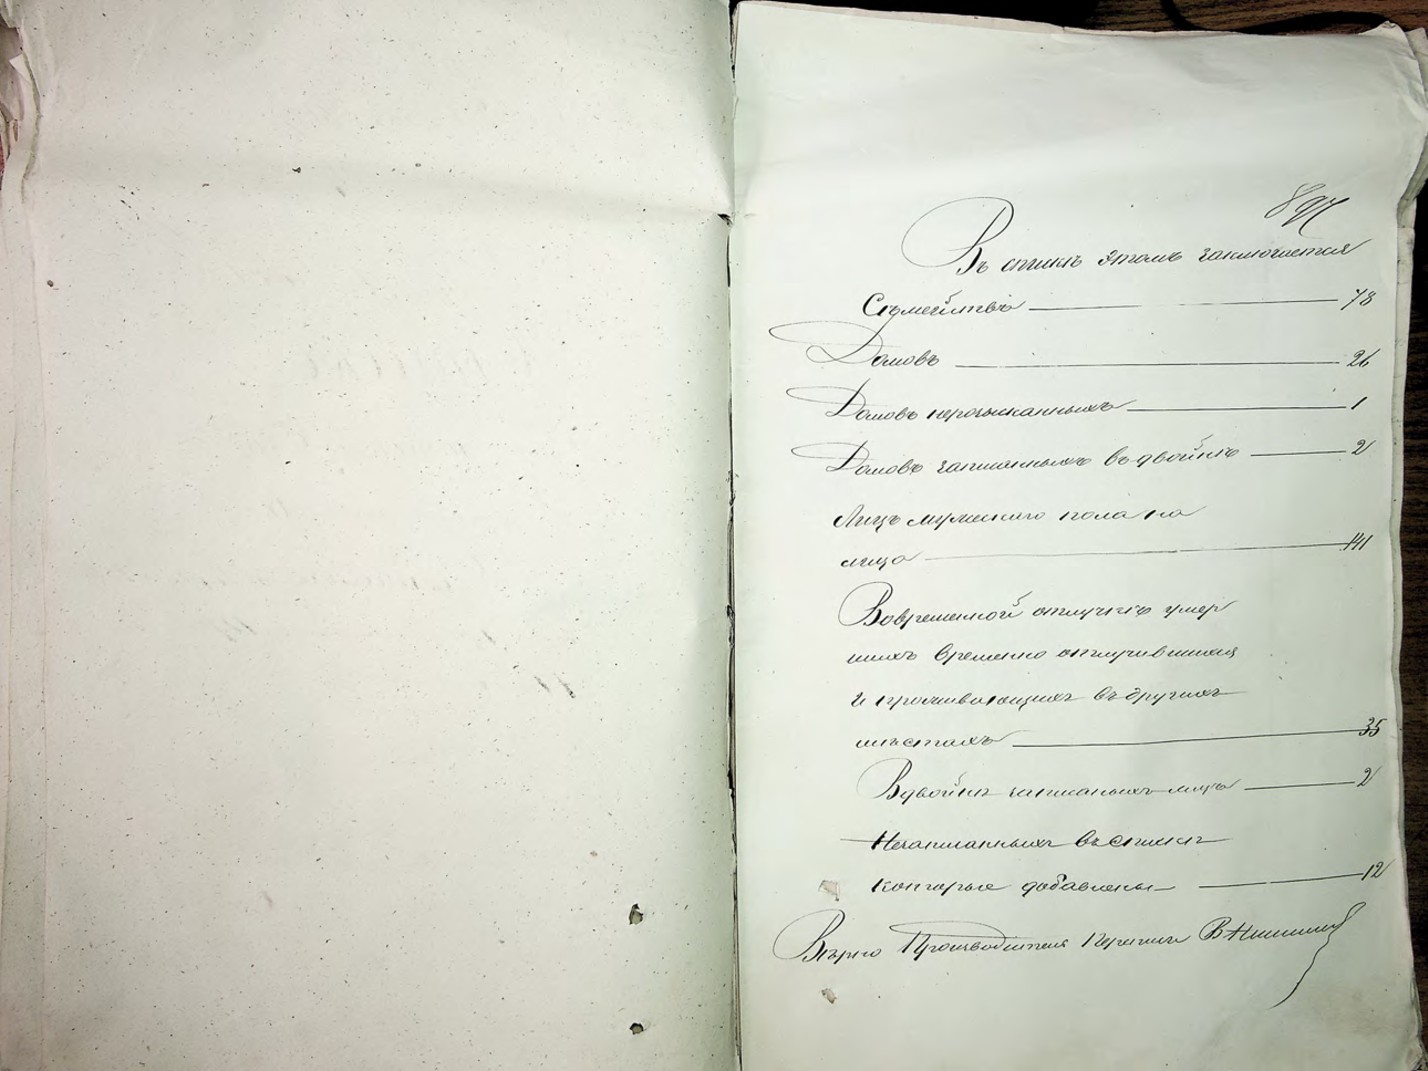 Въ спискѣ этомъ заключается
Съмействъ 78
Домовъ 26
Домовъ неразысканныхъ 1
Домовъ записанныхъ въ двойнѣ 2
Лицъ мужескаго пола на
лицо 141
Вовременной отлучкѣ умер
шихъ временно отлучившихся
и проживающихъ въ другихъ
мѣстахъ 35
Вдвойнѣ записаныхъ лицъ 2
Незаписанныхъ въ списки
которые добавлены 12
Вѣрно Производитель Переписи В